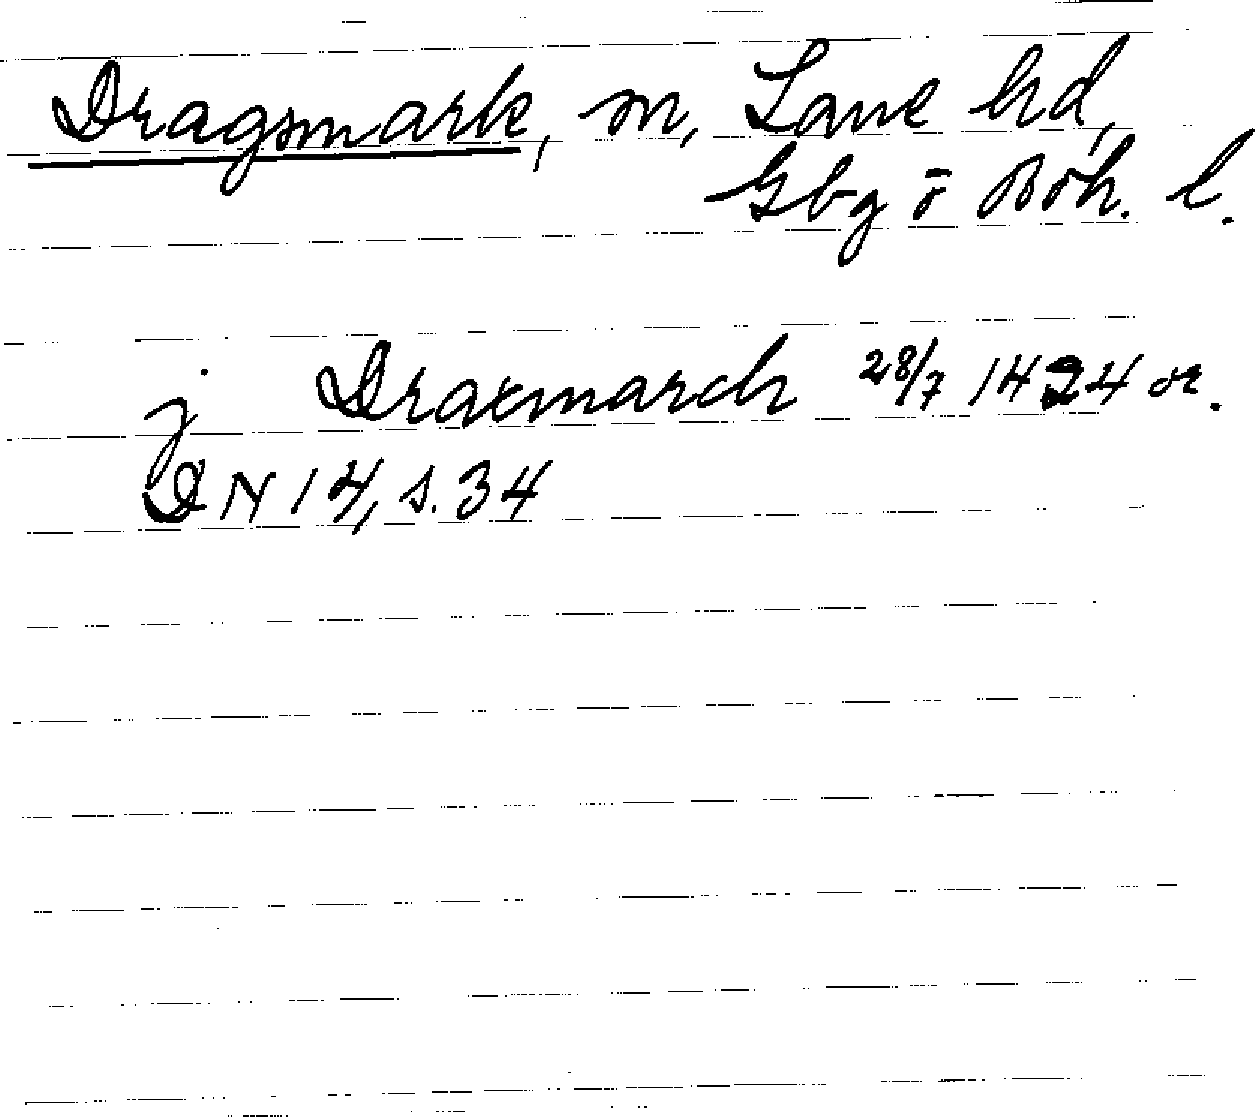 Dragsmark, sn, Lane hd,
Gbg o Boh. l.
j Draxmarch 28/7 1424 or.
DN 14, s. 34